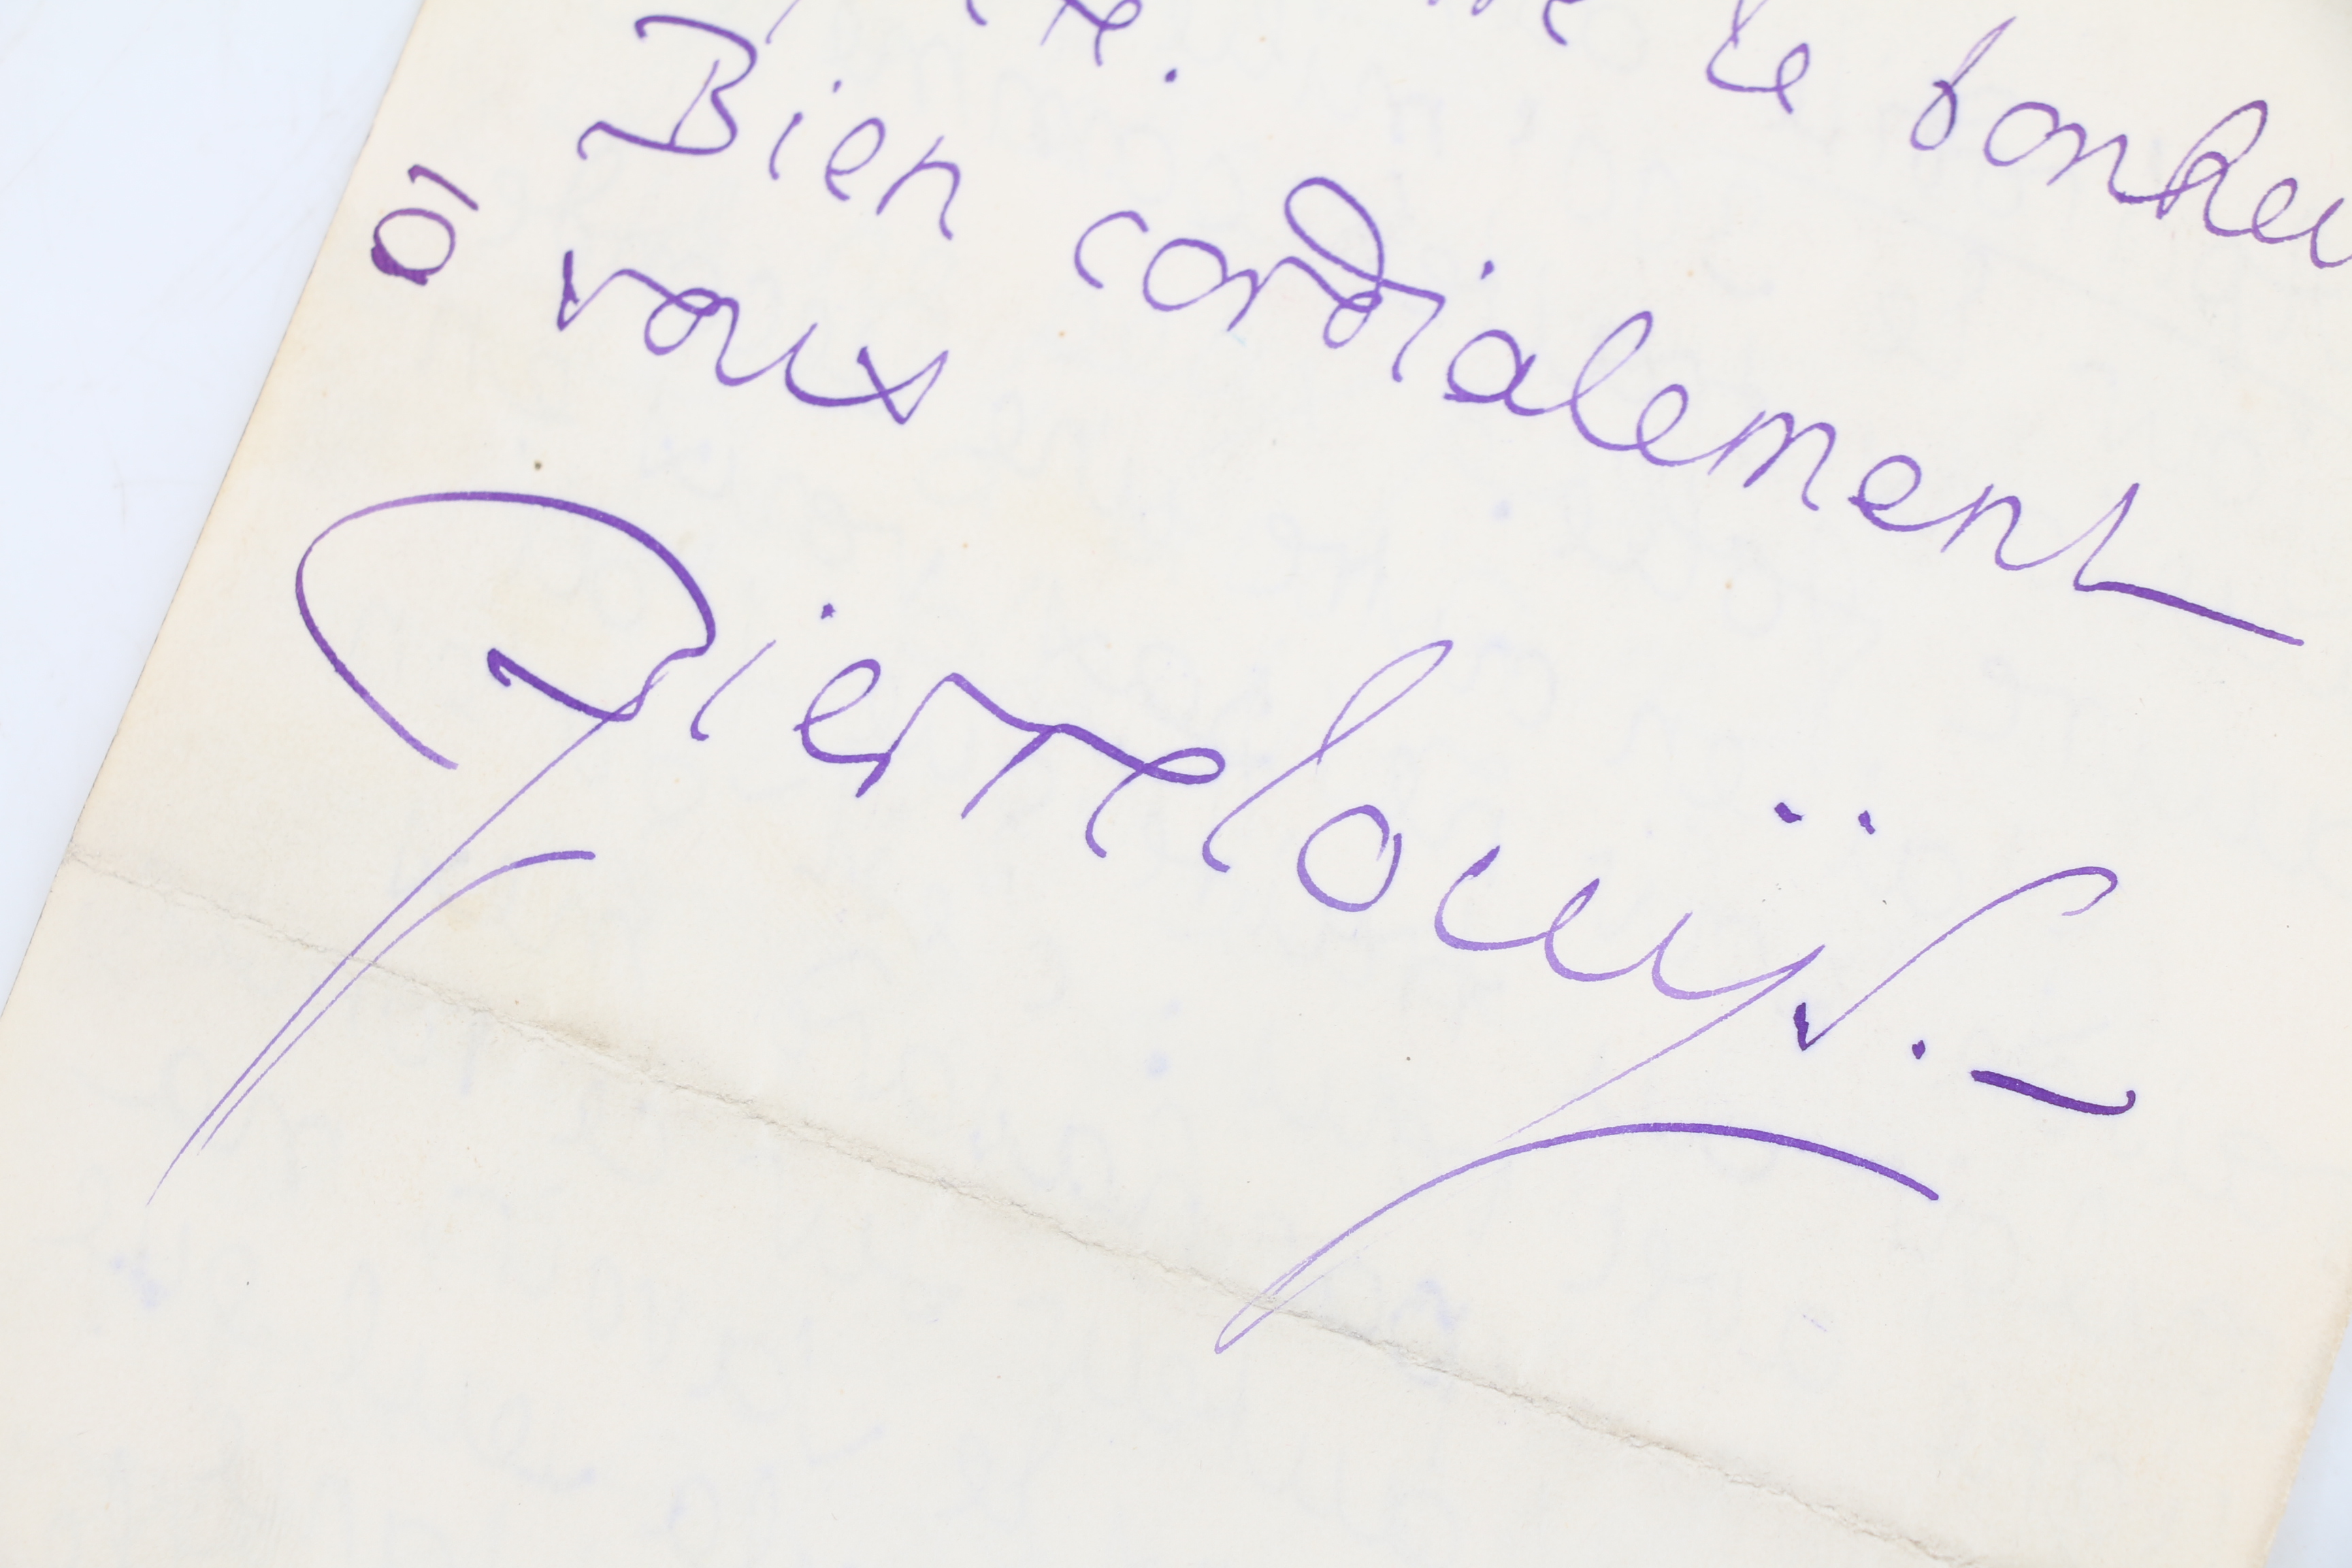 le bonheu
Bien cordialement
à vous
Pierre Louÿs. —